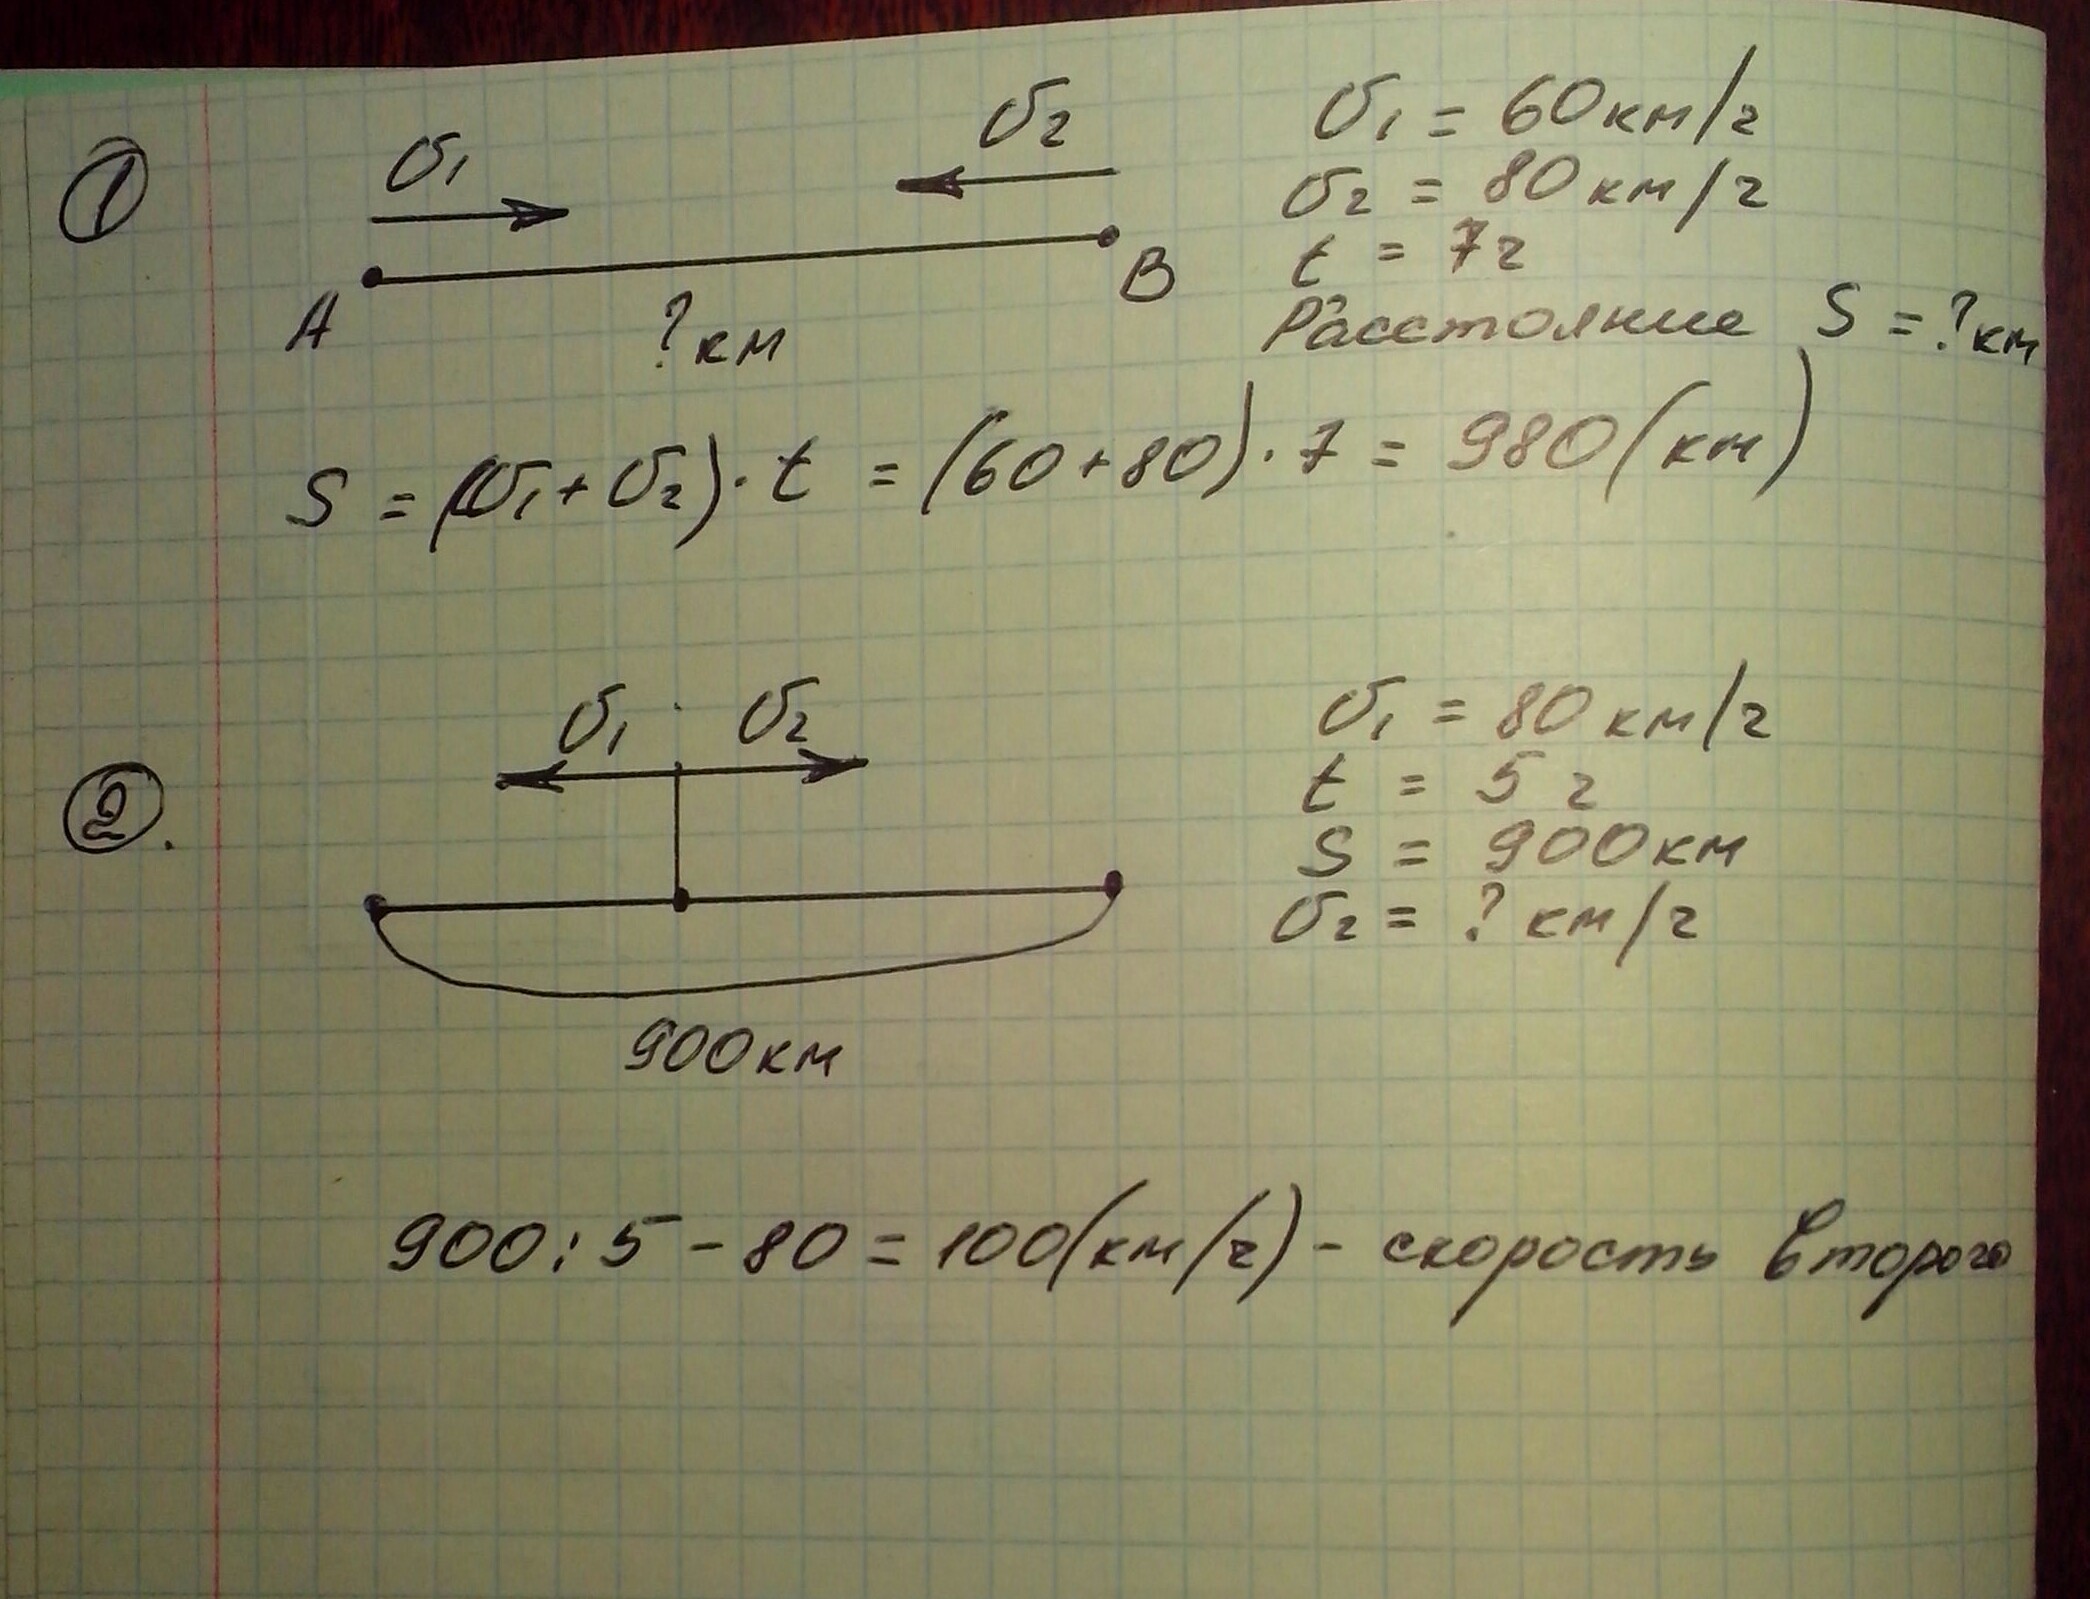 1
υ1 υ2
A B
? км
υ1 = 60 км/ч
υ2 = 80 км/ч
t = 7 ч
Расстояние S = ? км
S = (υ1 + υ2) · t = (60 + 80) · 7 = 980 (км)
2.
υ1 υ2
900 км
υ1 = 80 км/ч
t = 5 ч
S = 900 км
υ2 = ? км/ч
900 : 5 - 80 = 100 (км/ч) - скорость второго